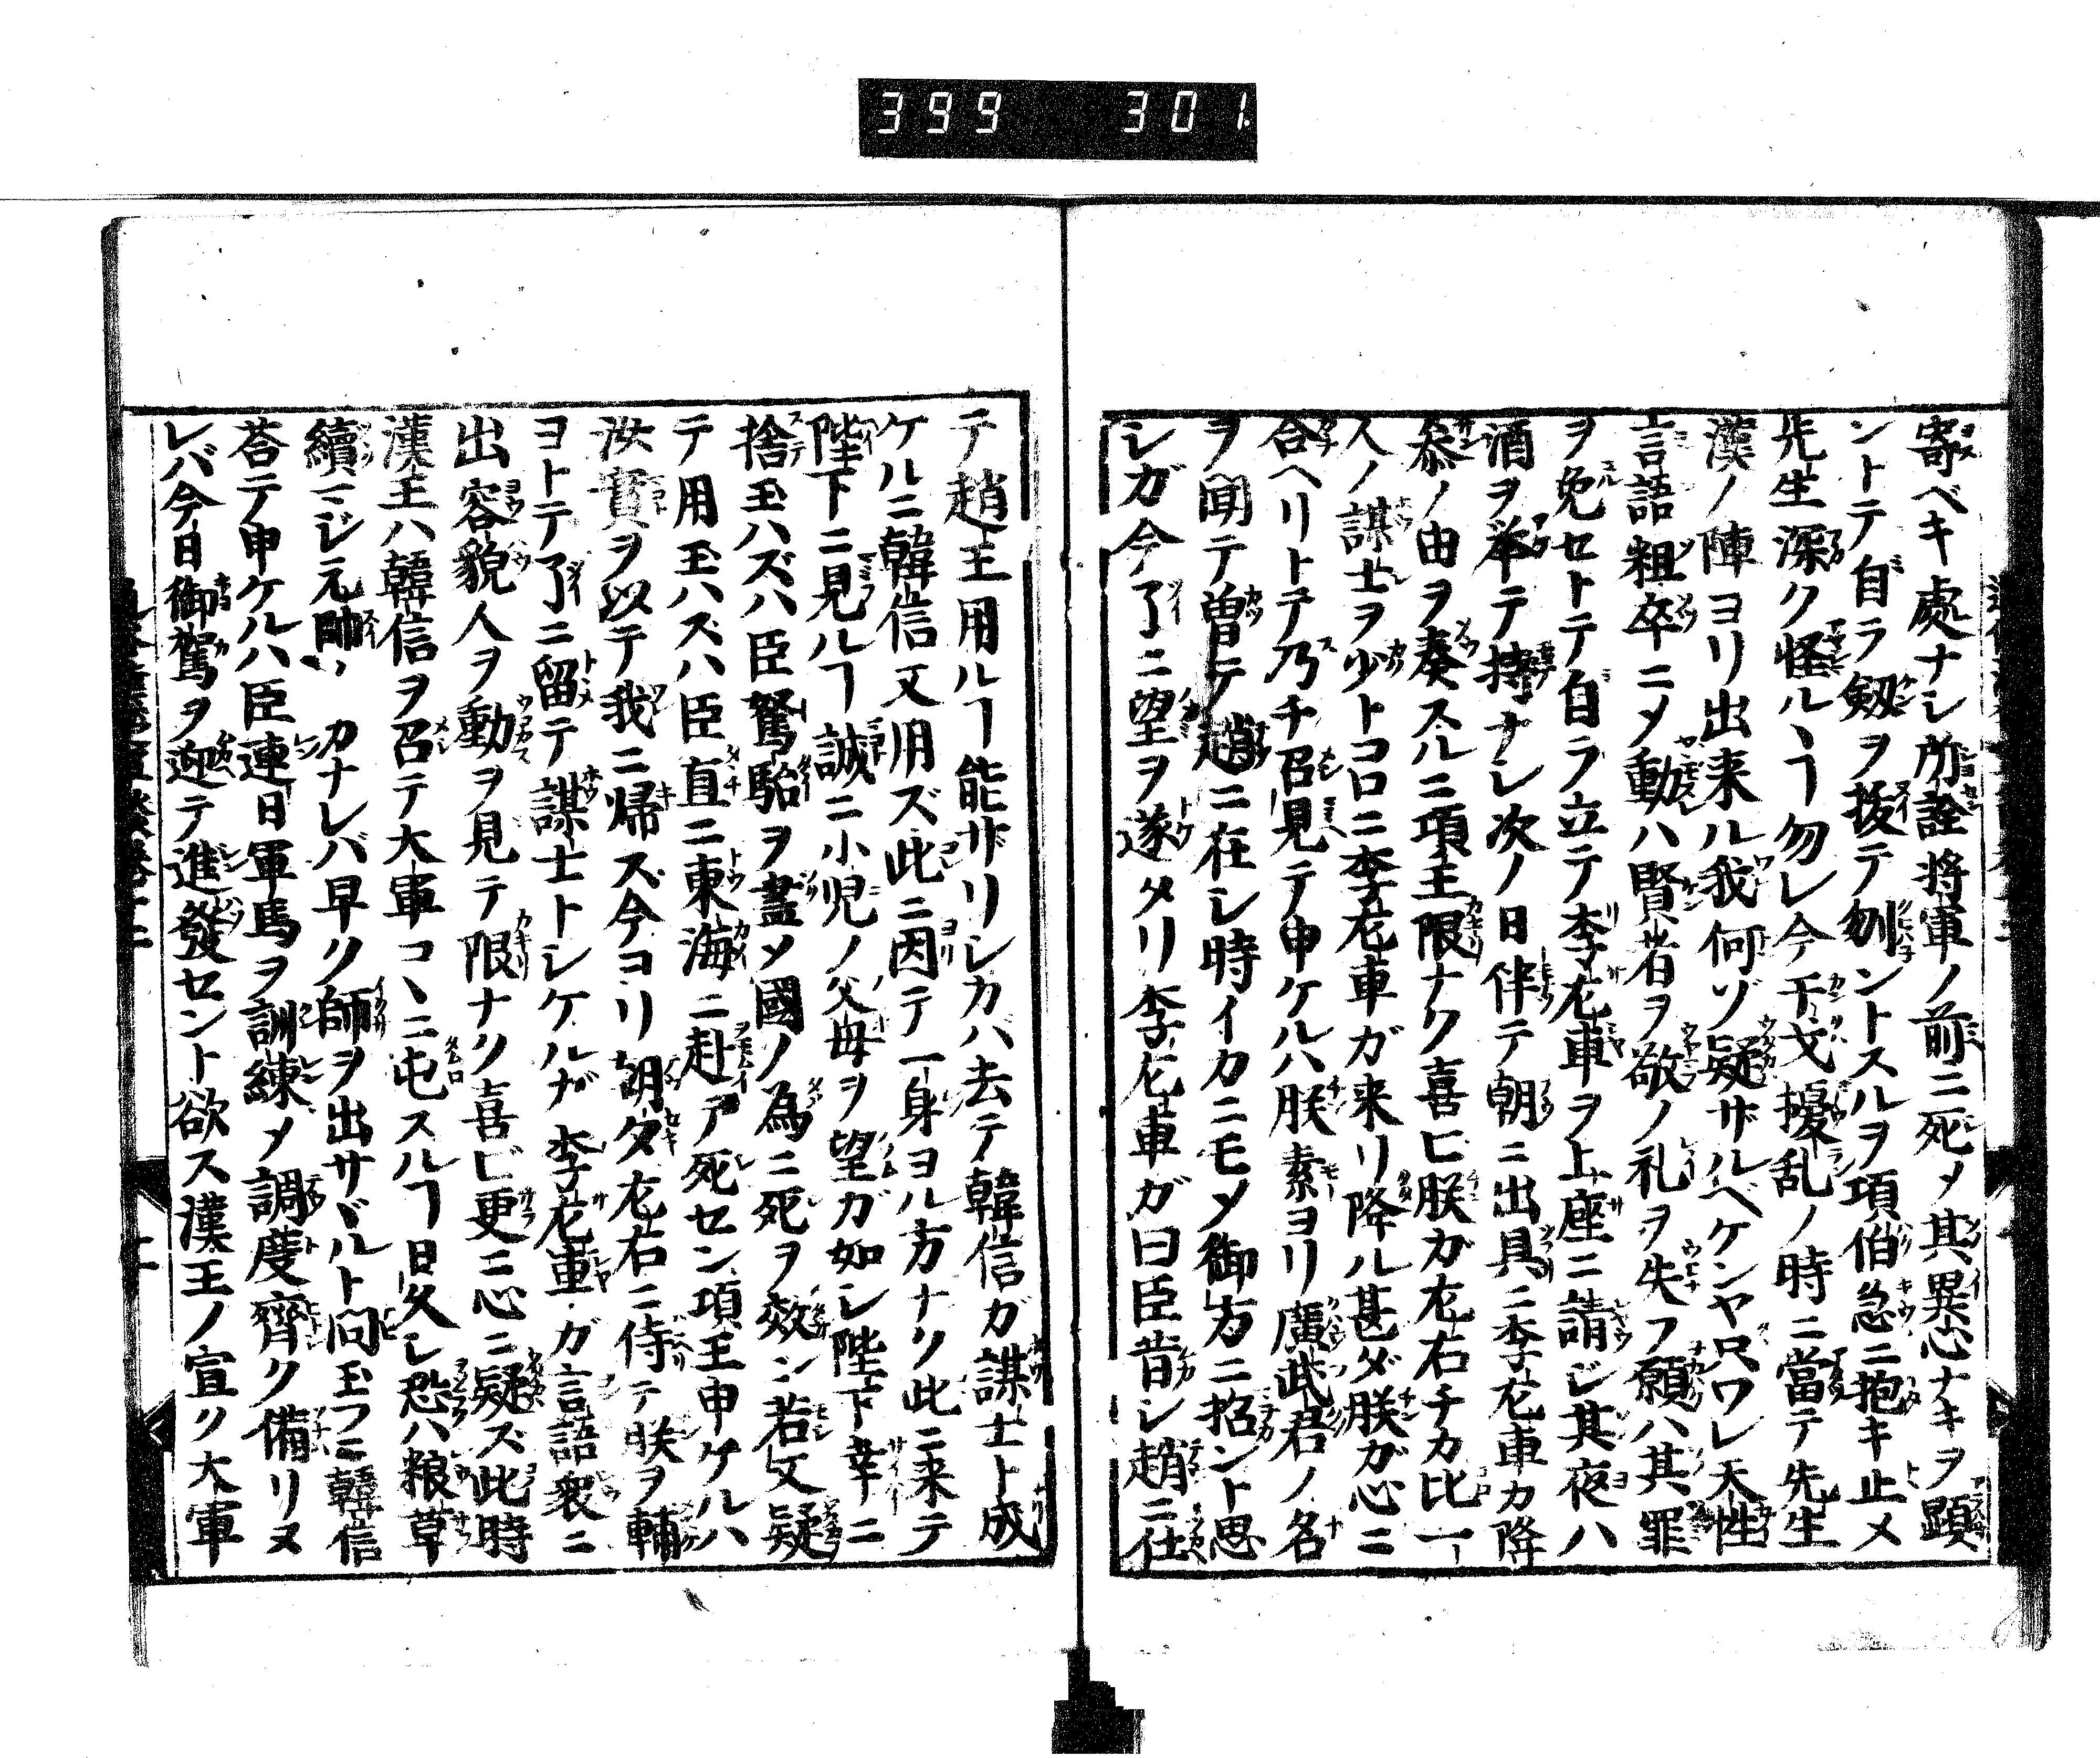 399 301.
寄ベキ處ナシ所詮將軍ノ前ニ死メ其異心ナキヲ顕
ントテ自ラ剱ヲ拔テ刎ントスルヲ項伯急ニ抱キ止メ
先生深ク怪ルヽヿ勿レ今干戈擾乱ノ時ニ當テ先生
漢ノ陣ヨリ出来ル我何ゾ疑ザルベケンヤ只ワレ天性
言語粗卒ニメ動ハ賢者ヲ敬ノ礼ヲ失フ願ハ其罪
ヲ免セトテ自ラ立テ李左車ヲ上座ニ請ジ其夜ハ
酒ヲ挙テ持ナシ次ノ日伴テ朝ニ出具ニ李左車カ降
参ノ由ヲ奏スルニ項王限ナク喜ヒ朕カ左右チカ比一
人ノ謀士ヲ少トコロニ李左車ガ来リ降ル甚ダ朕ガ心ニ
合ヘリトテ乃チ召見テ申ケルハ朕素ヨリ廣武君ノ名
ヲ聞テ曽テ趙ニ在シ時イカニモメ御方ニ招ント思
シガ今了ニ望ヲ遂タリ李左車ガ曰臣昔シ趙ニ仕
テ趙王用ルヿ能ザリシカハ去テ韓信ガ謀士ト成
ケルニ韓信又用ズ此ニ因テ一身ヨル方ナリ此ニ来テ
陛下ニ見ルヿ誠ニ小児ノ父母ヲ望ガ如シ陛下幸ニ
捨玉ハズハ臣駑駘ヲ盡メ國ノ為ニ死ヲ效ン若又疑
テ用玉ハズハ臣直ニ東海ニ赴テ死セン項王申ケルハ
汝實ヲ以テ我ニ帰ス今ヨリ朝夕左右ニ侍テ朕ヲ輔
ヨトテ了ニ留テ謀士トシケルガ李左車ガ言語衆ニ
出容貌人ヲ動ヲ見テ限ナク喜ビ更ニ心ニ疑ズ此時
漢王ハ韓信ヲ召テ大軍コヽニ屯スルヿ日久シ恐ハ粮草
續ニジ元帥 カナレバ早ク師ヲ出サヾルト問玉フニ韓信
荅テ申ケルハ臣連日軍馬ヲ訓練メ調度齊ク備リヌ
レバ今日御駕ヲ迎テ進發セント欲ス漢王ノ宣ク大軍